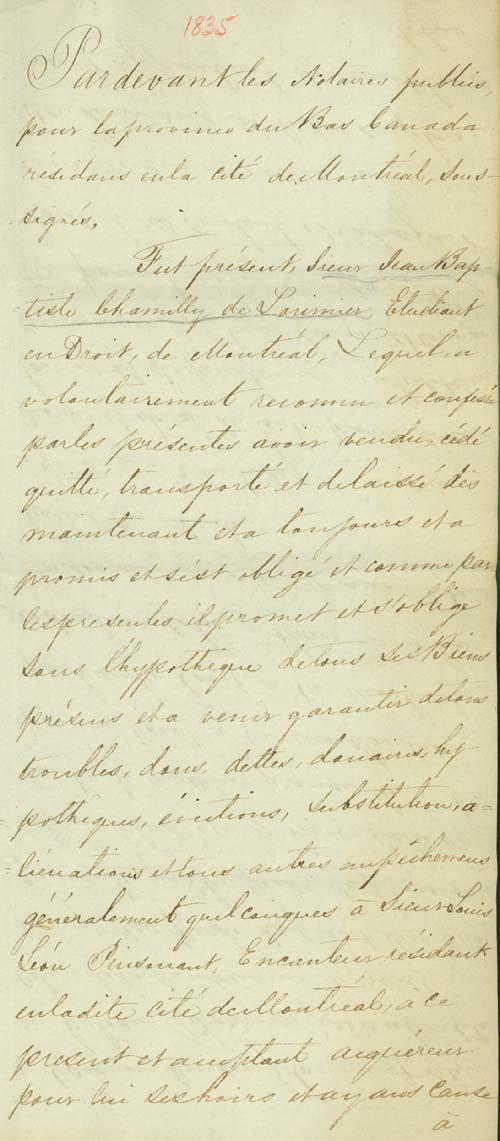 1835
Pardevant les Notaires publics,
pour la province du Bas Canada
résidans en la cité de Montréal, sous-
signés,
Fut présent, Sieur Jean Bap-
tiste Chamilly de Lorimier, Etudiant
en Droit, de Montréal, Lequel a
volontairement reconnu et confessé
par les présentes avoir vendu, cédé
quitté, transporté et delaissé dès
maintenant et a toujours et a
promis et s'est obligé et comme par
les presentes il promet et s'oblige
sous l'hypothèque de tous ses Biens
présens et a venir garantir de tous
troubles, dons, dettes, douaires, hy
pothèques, évictions, substitution, a=
=liénations et tous autres empêchemens
généralement quelconques à Sieur Louis
Léon, Encanteur résidant
en ladite cité de Montréal, à ce
present et acceptant acquéreur
pour lui ses hoirs et ayans cause
à